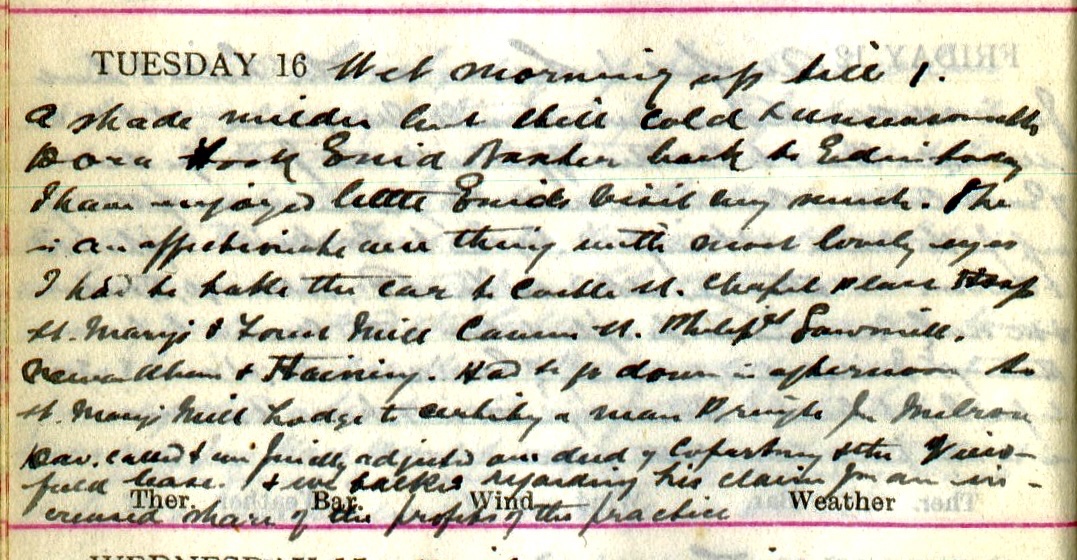 TUESDAY 16 Wet morning up till 1.
A shade milder but still cold & unseasonable
Dora took Enid back to Edinburgh
I have enjoyed little Enid's visit very much. She
is an affectionate wee thing with most lovely eyes
I had to take the car to Castle St. Chapel Place
St. Mary's & Forest Mill St. Philip St Sawmill.
& Haining. Had to go down in afternoon to
St. Mary's Mill Lodge to certify a man Pringle for
Dav. called & we finally adjusted our deed of Copartnery & the View-
field lease. & we talked regarding his claim for an in-
Ther. Bar. Wind Weather
creased share of the profits of the practice